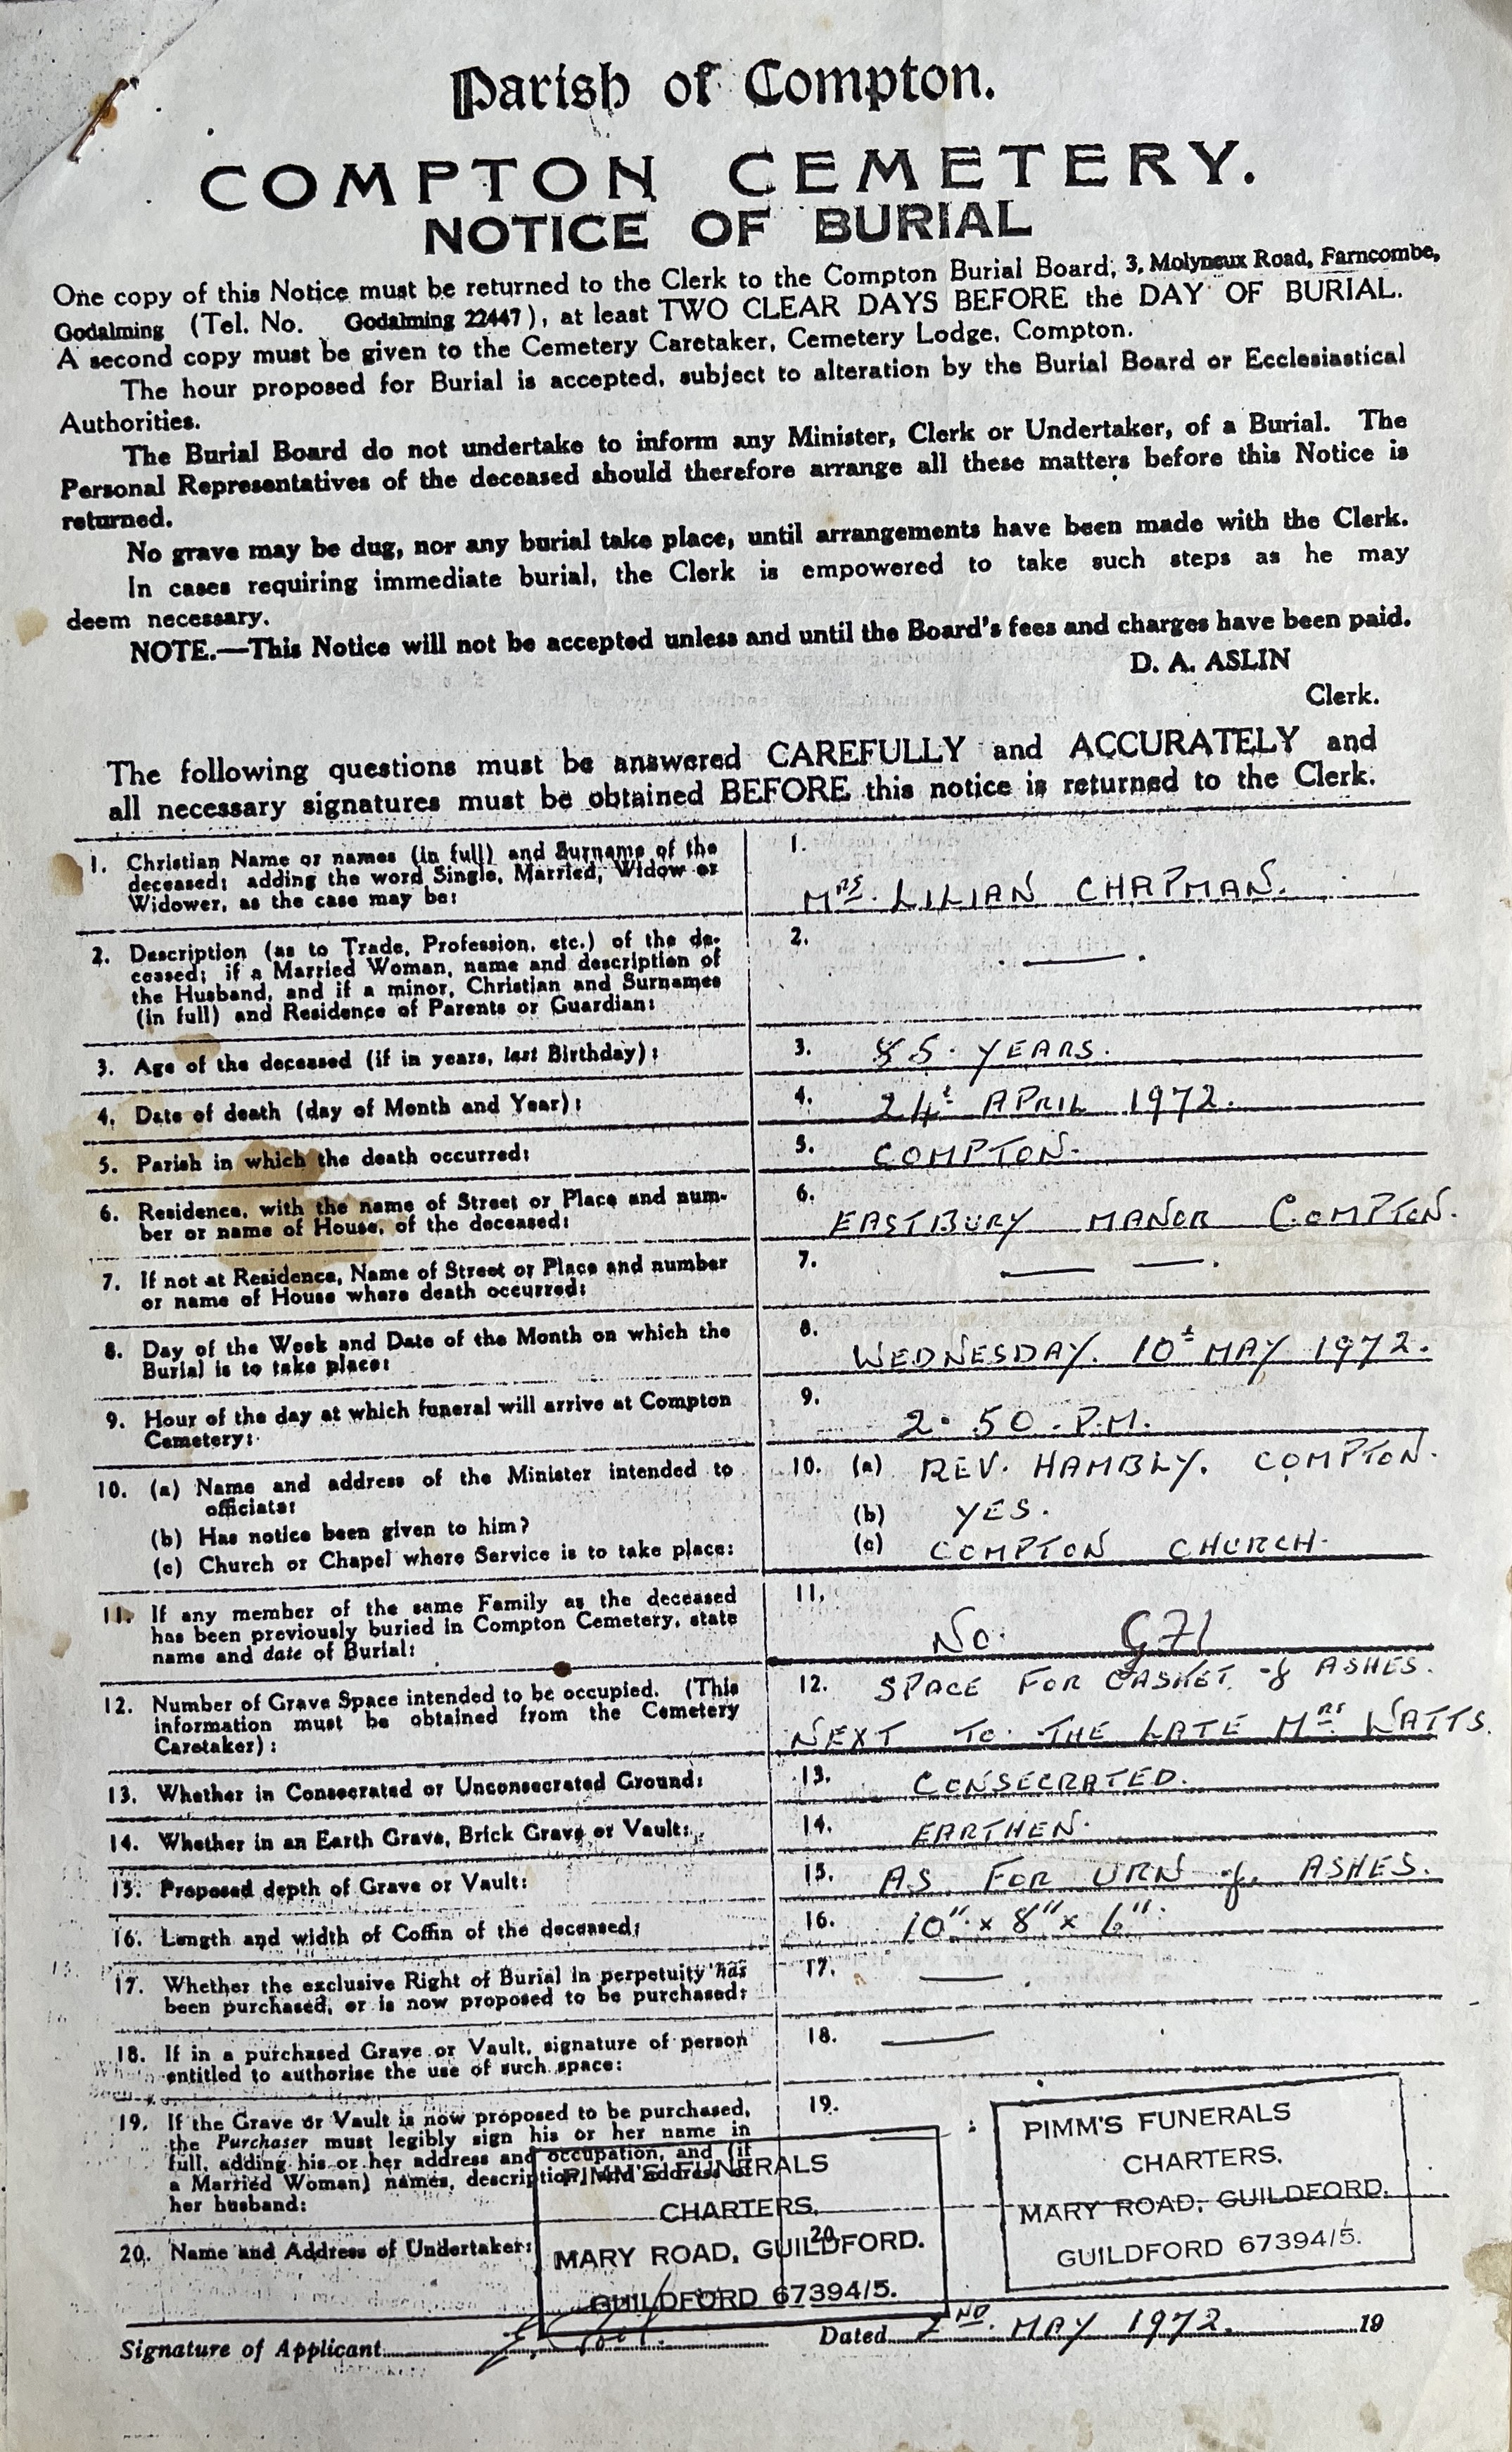 Parish of Compton.
COMPTON CEMETERY.
NOTICE OF BURIAL
One copy of this Notice must be returned to the Clerk to the Compton Burial Board, 3, Molyneux Road, Farncombe,
Godalming (Tel. No. Godalming 22447), at least TWO CLEAR DAYS BEFORE the DAY OF BURIAL.
A second copy must be given to the Cemetery Caretaker, Cemetery Lodge, Compton.
The hour proposed for Burial is accepted, subject to alteration by the Burial Board or Ecclesiastical
Authorities.
The Burial Board do not undertake to inform any Minister, Clerk or Undertaker, of a Burial. The
Personal Representatives of the deceased should therefore arrange all these matters before this Notice is
returned.
No grave may be dug, nor any burial take place, until arrangements have been made with the Clerk.
In cases requiring immediate burial, the Clerk is empowered to take such steps as he may
deem necessary.
NOTE.—This Notice will not be accepted unless and until the Board's fees and charges have been paid.
D. A. ASLIN
Clerk.
The following questions must be answered CAREFULLY and ACCURATELY and
all necessary signatures must be obtained BEFORE this notice is returned to the Clerk.
1. Christian Name or names (in full) and Surname of the
deceased; adding the word Single, Married, Widow or
Widower, as the case may be:
1.
MRS. LILIAN CHAPMAN.
2. Description (as to Trade, Profession, etc.) of the de-
ceased; if a Married Woman, name and description of
the Husband, and if a minor, Christian and Surnames
(in full) and Residence of Parents or Guardian:
2. —
3. Age of the deceased (if in years, last Birthday):
3. 85. YEARS.
4. Date of death (day of Month and Year):
4. 24t APRIL 1972.
5. Parish in which the death occurred:
5. COMPTON.
6. Residence, with the name of Street or Place and num-
ber or name of House, of the deceased:
6.
EASTBURY MANOR COMPTON.
7. If not at Residence, Name of Street or Place and number
or name of House where death occurred:
7. — —.
8. Day of the Week and Date of the Month on which the
Burial is to take place:
8.
WEDNESDAY. 10t MAY 1972.
9. Hour of the day at which funeral will arrive at Compton
Cemetery:
9.
2.50.P.M.
10. (a) Name and address of the Minister intended to
officiate:
(b) Has notice been given to him?
(c) Church or Chapel where Service is to take place:
10. (a) REV. HAMBLY. COMPTON.
(b) YES.
(c) COMPTON CHURCH.
11. If any member of the same Family as the deceased
has been previously buried in Compton Cemetery, state
name and date of Burial:
11.
No. G71
12. Number of Grave Space intended to be occupied. (This
information must be obtained from the Cemetery
Caretaker):
12. SPACE FOR CASKET of ASHES.
NEXT TO THE LATE MRS WATTS.
13. Whether in Consecrated or Unconsecrated Ground:
13. CONSECRATED.
14. Whether in an Earth Grave, Brick Grave or Vault:
14. EARTHEN.
15. Proposed depth of Grave or Vault:
15. AS FOR URN of ASHES.
16. Length and width of Coffin of the deceased:
16. 10" x 8" x 6".
17. Whether the exclusive Right of Burial in perpetuity has
been purchased, or is now proposed to be purchased:
17. —.
18. If in a purchased Grave or Vault, signature of person
entitled to authorise the use of such space:
18. —
19. If the Grave or Vault is now proposed to be purchased,
the Purchaser must legibly sign his or her name in
full, adding his or her address and occupation, and (if
a Married Woman) names, description, and address of
her husband:
19.
20. Name and Address of Undertaker:
20.
PIMM'S FUNERALS
CHARTERS,
MARY ROAD, GUILDFORD.
GUILDFORD 67394/5.
PIMM'S FUNERALS
CHARTERS,
MARY ROAD, GUILDFORD.
GUILDFORD 67394/5.
Signature of Applicant
Dated 2ND. MAY 1972. 19